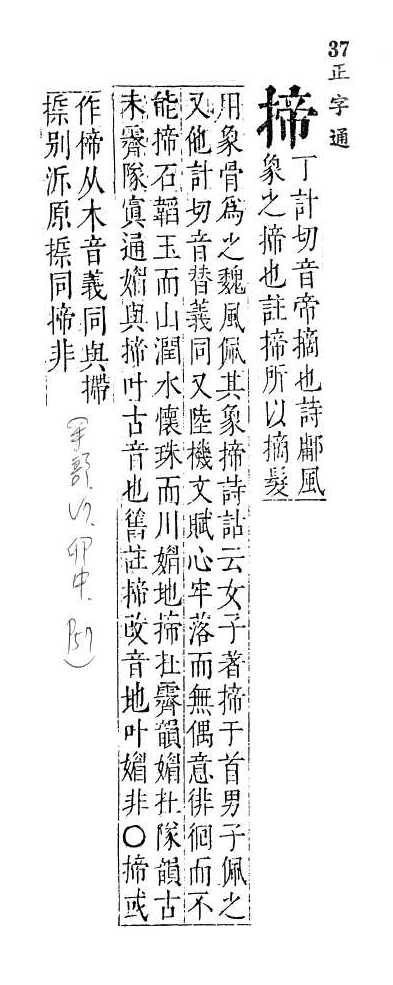 37
正字通
揥
丁計切音帝摘也詩鄘風
象之揥也註揥所以摘髮
用象骨爲之魏風佩其象揥詩詁云女子著揥于首男子佩之
又他計切音替義同又陸機文賦心牢落而無偶意徘徊而不
能揥石韞玉而山潤水懷珠而川媚地揥在霽韻媚在隊韻古
未霽隊寘通媚與揥叶古音也舊註揥改音地叶媚非○揥或
作楴从木音義同與摕
別泝原同揥非
(手部, 卯中. P57)